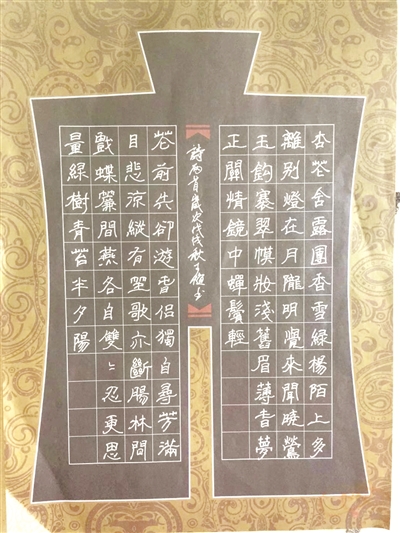 杏花含露團香雪綠楊陌上多
離別燈在月朧明覺來聞曉鶯
玉鈎褰翠幙妝淺舊眉薄春夢
正關情鏡中蟬鬢輕
詩兩首歲次戊戌秋書
花前失卻遊春侶獨自尋芳滿
目悲涼縱有笙歌亦斷腸林間
戲蝶簾間燕各自雙〻忍更思
量綠樹青苔半夕陽